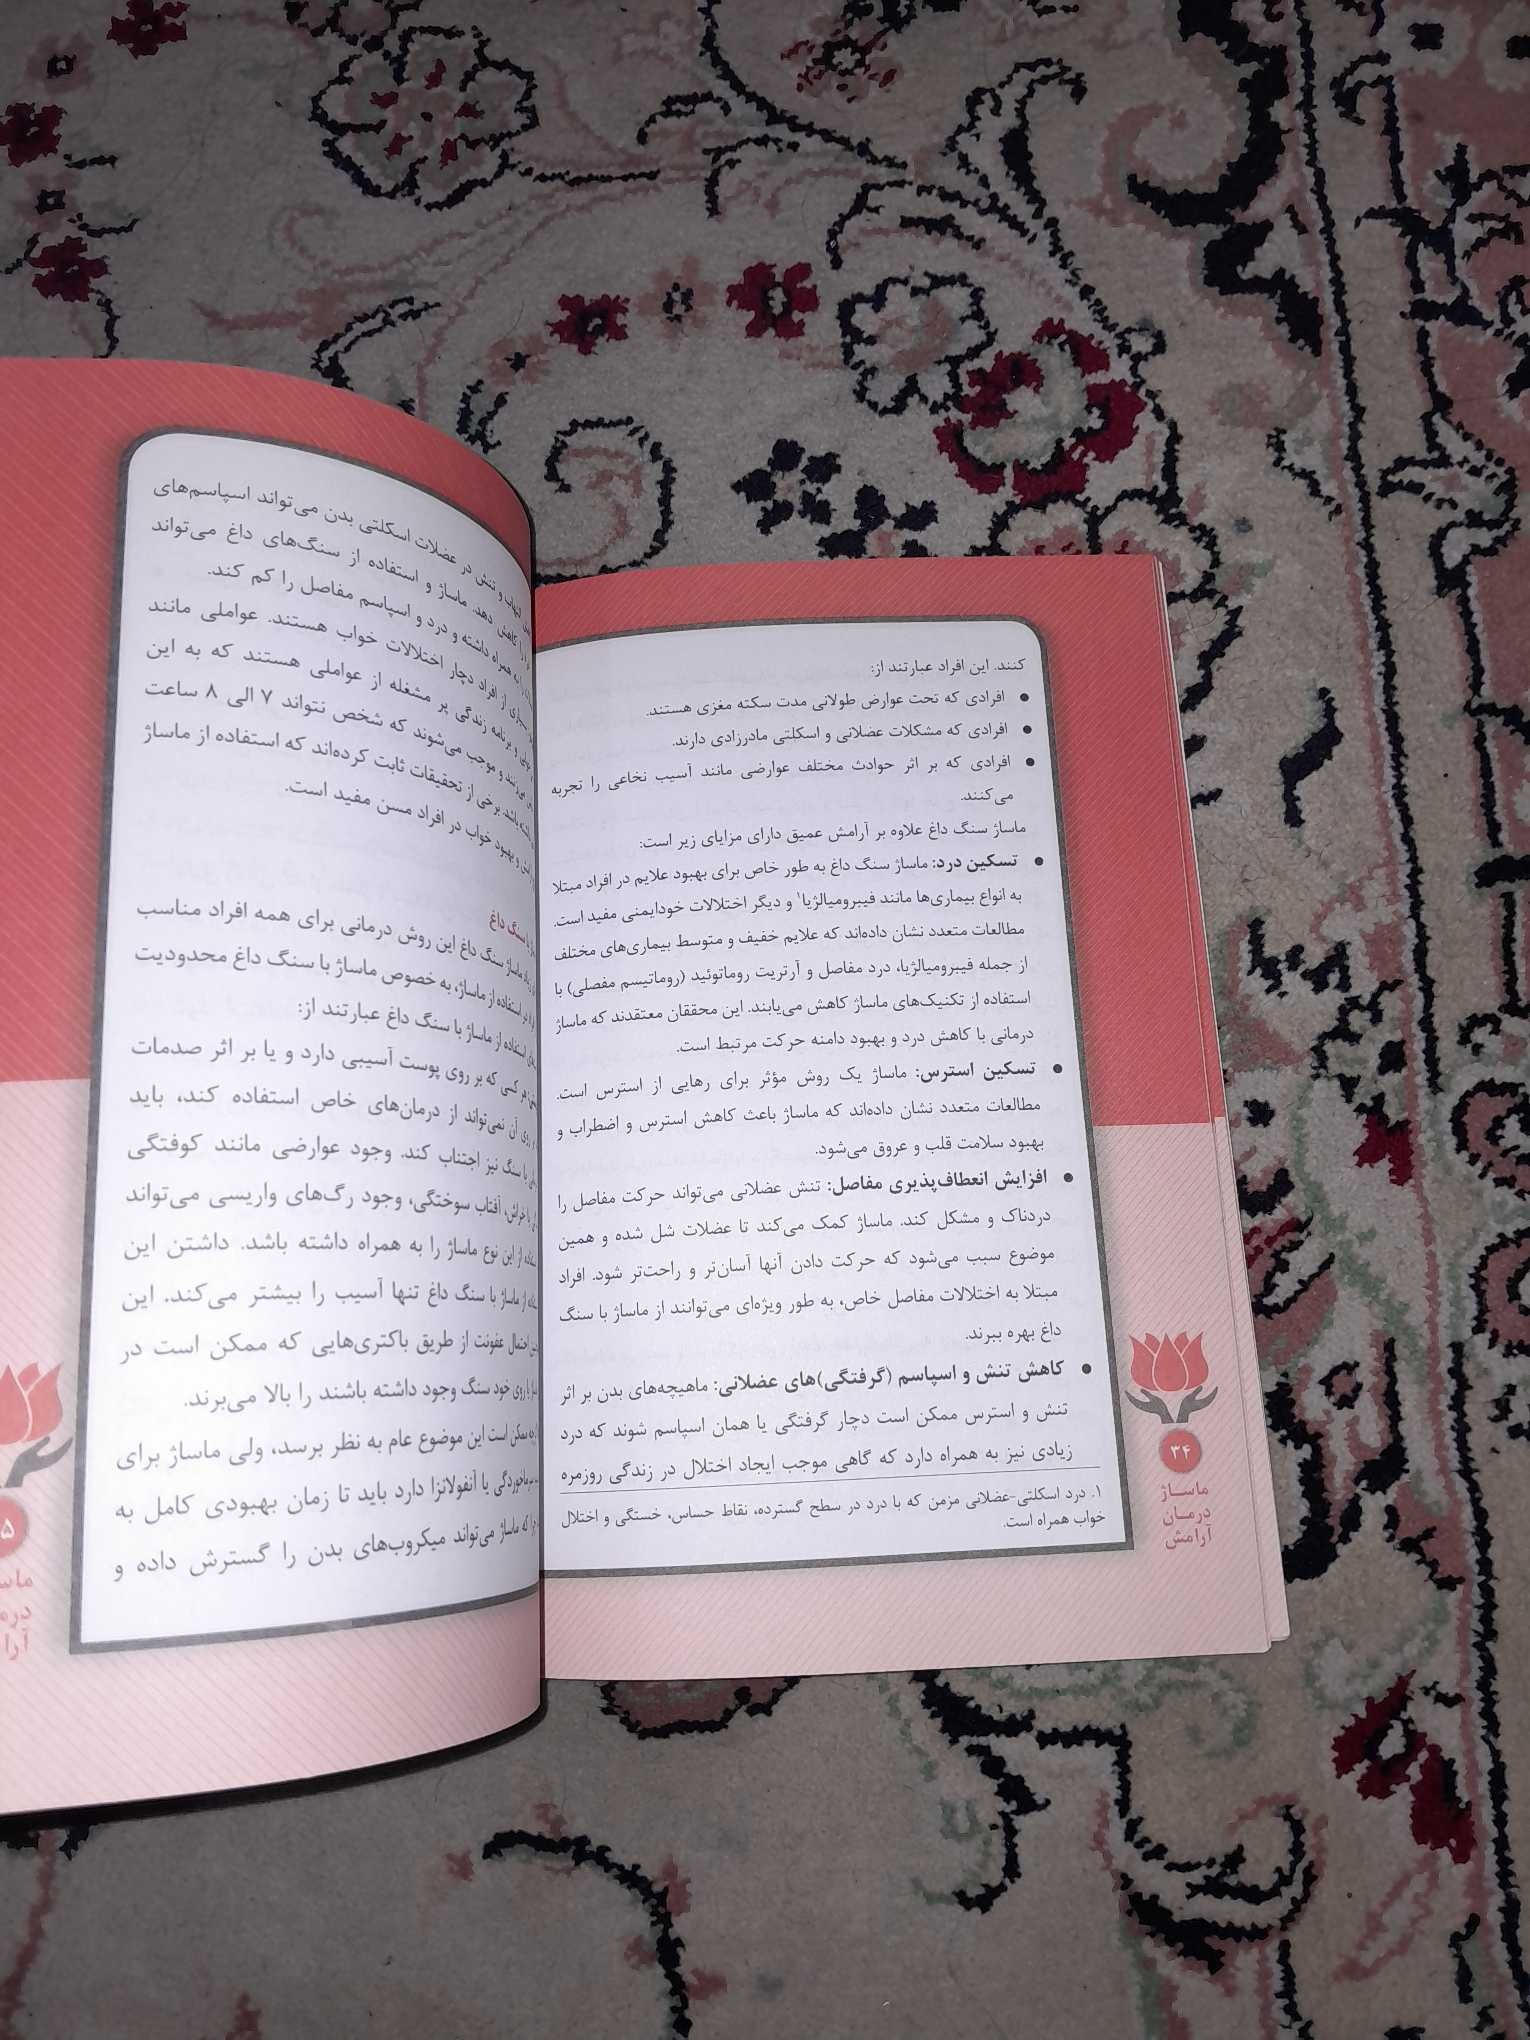 کنند. این افراد عبارتند از:
● افرادی که تحت عوارض طولانی مدت سکته مغزی هستند.
● افرادی که مشکلات عضلانی و اسکلتی مادرزادی دارند.
● افرادی که بر اثر حوادث مختلف عوارضی مانند آسیب نخاعی را تجربه
می‌کنند.
ماساژ سنگ داغ علاوه بر آرامش عمیق دارای مزایای زیر است:
● تسکین درد: ماساژ سنگ داغ به طور خاص برای بهبود علایم در افراد مبتلا
به انواع بیماری‌ها مانند فیبرومیالژیا۱ و دیگر اختلالات خودایمنی مفید است.
مطالعات متعدد نشان داده‌اند که علایم خفیف و متوسط بیماری‌های مختلف
از جمله فیبرومیالژیا، درد مفاصل و آرتریت روماتوئید (روماتیسم مفصلی) با
استفاده از تکنیک‌های ماساژ کاهش می‌یابند. این محققان معتقدند که ماساژ
درمانی با کاهش درد و بهبود دامنه حرکت مرتبط است.
● تسکین استرس: ماساژ یک روش مؤثر برای رهایی از استرس است.
مطالعات متعدد نشان داده‌اند که ماساژ باعث کاهش استرس و اضطراب و
بهبود سلامت قلب و عروق می‌شود.
● افزایش انعطاف‌پذیری مفاصل: تنش عضلانی می‌تواند حرکت مفاصل را
دردناک و مشکل کند. ماساژ کمک می‌کند تا عضلات شل شده و همین
موضوع سبب می‌شود که حرکت دادن آنها آسان‌تر و راحت‌تر شود. افراد
مبتلا به اختلالات مفاصل خاص، به طور ویژه‌ای می‌توانند از ماساژ با سنگ
داغ بهره ببرند.
● کاهش تنش و اسپاسم (گرفتگی)های عضلانی: ماهیچه‌های بدن بر اثر
تنش و استرس ممکن است دچار گرفتگی یا همان اسپاسم شوند که درد
زیادی نیز به همراه دارد که گاهی موجب ایجاد اختلال در زندگی روزمره
۱. درد اسکلتی-عضلانی مزمن که با درد در سطح گسترده، نقاط حساس، خستگی و اختلال
خواب همراه است.
۳۴
ماساژ
درمان
آرامش
التهاب و تنش در عضلات اسکلتی بدن می‌تواند اسپاسم‌های
را کاهش دهد. ماساژ و استفاده از سنگ‌های داغ می‌تواند
به همراه داشته و درد و اسپاسم مفاصل را کم کند.
از افراد دچار اختلالات خواب هستند. عواملی مانند
و برنامه زندگی پر مشغله از عواملی هستند که به این
می‌زنند و موجب می‌شوند که شخص نتواند ۷ الی ۸ ساعت
باشد. برخی از تحقیقات ثابت کرده‌اند که استفاده از ماساژ
و بهبود خواب در افراد مسن مفید است.
با سنگ داغ
ماساژ سنگ داغ این روش درمانی برای همه افراد مناسب
در استفاده از ماساژ، به خصوص ماساژ با سنگ داغ محدودیت
استفاده از ماساژ با سنگ داغ عبارتند از:
هر کسی که بر روی پوست آسیبی دارد و یا بر اثر صدمات
روی آن نمی‌تواند از درمان‌های خاص استفاده کند، باید
با سنگ نیز اجتناب کند. وجود عوارضی مانند کوفتگی
خراش، آفتاب سوختگی، وجود رگ‌های واریسی می‌تواند
از این نوع ماساژ را به همراه داشته باشد. داشتن این
از ماساژ با سنگ داغ تنها آسیب را بیشتر می‌کند. این
احتمال عفونت از طریق باکتری‌هایی که ممکن است در
یا روی خود سنگ وجود داشته باشند را بالا می‌برند.
ممکن است این موضوع عام به نظر برسد، ولی ماساژ برای
سرماخوردگی یا آنفولانزا دارد باید تا زمان بهبودی کامل به
که ماساژ می‌تواند میکروب‌های بدن را گسترش داده و
۵